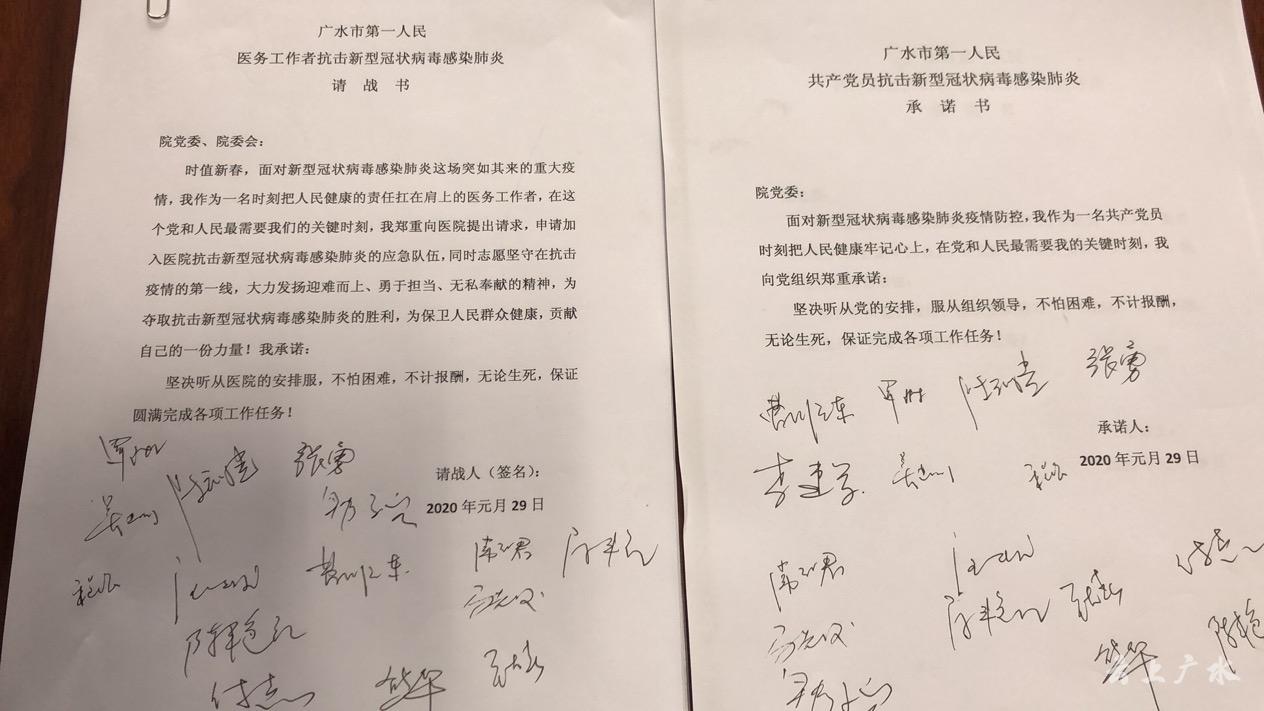 广水市第一人民
医务工作者抗击新型冠状病毒感染肺炎
请 战 书
院党委、院委会：
时值新春，面对新型冠状病毒感染肺炎这场突如其来的重大疫
情，我作为一名时刻把人民健康的责任扛在肩上的医务工作者，在这
个党和人民最需要我们的关键时刻，我郑重向医院提出请求，申请加
入医院抗击新型冠状病毒感染肺炎的应急队伍，同时志愿坚守在抗击
疫情的第一线，大力发扬迎难而上、勇于担当、无私奉献的精神，为
夺取抗击新型冠状病毒感染肺炎的胜利，为保卫人民群众健康，贡献
自己的一份力量！我承诺：
坚决听从医院的安排服，不怕困难，不计报酬，无论生死，保证
圆满完成各项工作任务！
张勇
请战人（签名）：
2020 年元月 29 日
广水市第一人民
共产党员抗击新型冠状病毒感染肺炎
承 诺 书
院党委：
面对新型冠状病毒感染肺炎疫情防控，我作为一名共产党员
时刻把人民健康牢记心上，在党和人民最需要我的关键时刻，我
向党组织郑重承诺：
坚决听从党的安排，服从组织领导，不怕困难，不计报酬，
无论生死，保证完成各项工作任务！
张勇
承诺人：
2020 年元月 29 日
李建学
云上广水